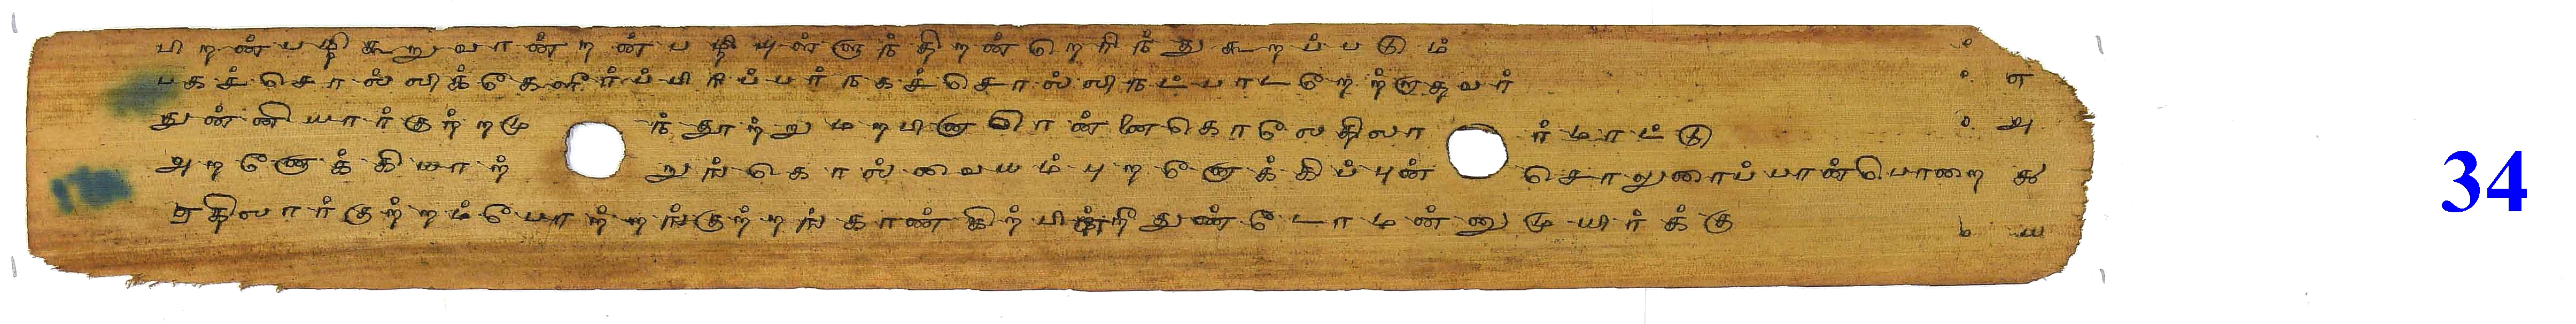 பிறன்பழிகூறுவான்றன்பழியுள்ளுந்திறன்றெரிந்துகூறப்படும்
பகச்சொல்லிக்கேளிர்ப்பிரிப்பர்நகச்சொல்லிநட்பாடறேற்றாதவர் எ
துன்னியார்குற்றமுந்தூற்றுமரபினாரென்னைகொலேதிலார்மாட்டு அ
அறனோக்கியாற்றுங்கொல்வையம்புறனோக்கிப்புன்சொலுரைப்பான்பொறை கூ
ஏதிலார்குற்றம்போற்றங்குற்றங்காண்கிற்பின்றீதுண்டோமன்னுமுயிர்க்கு ய
34